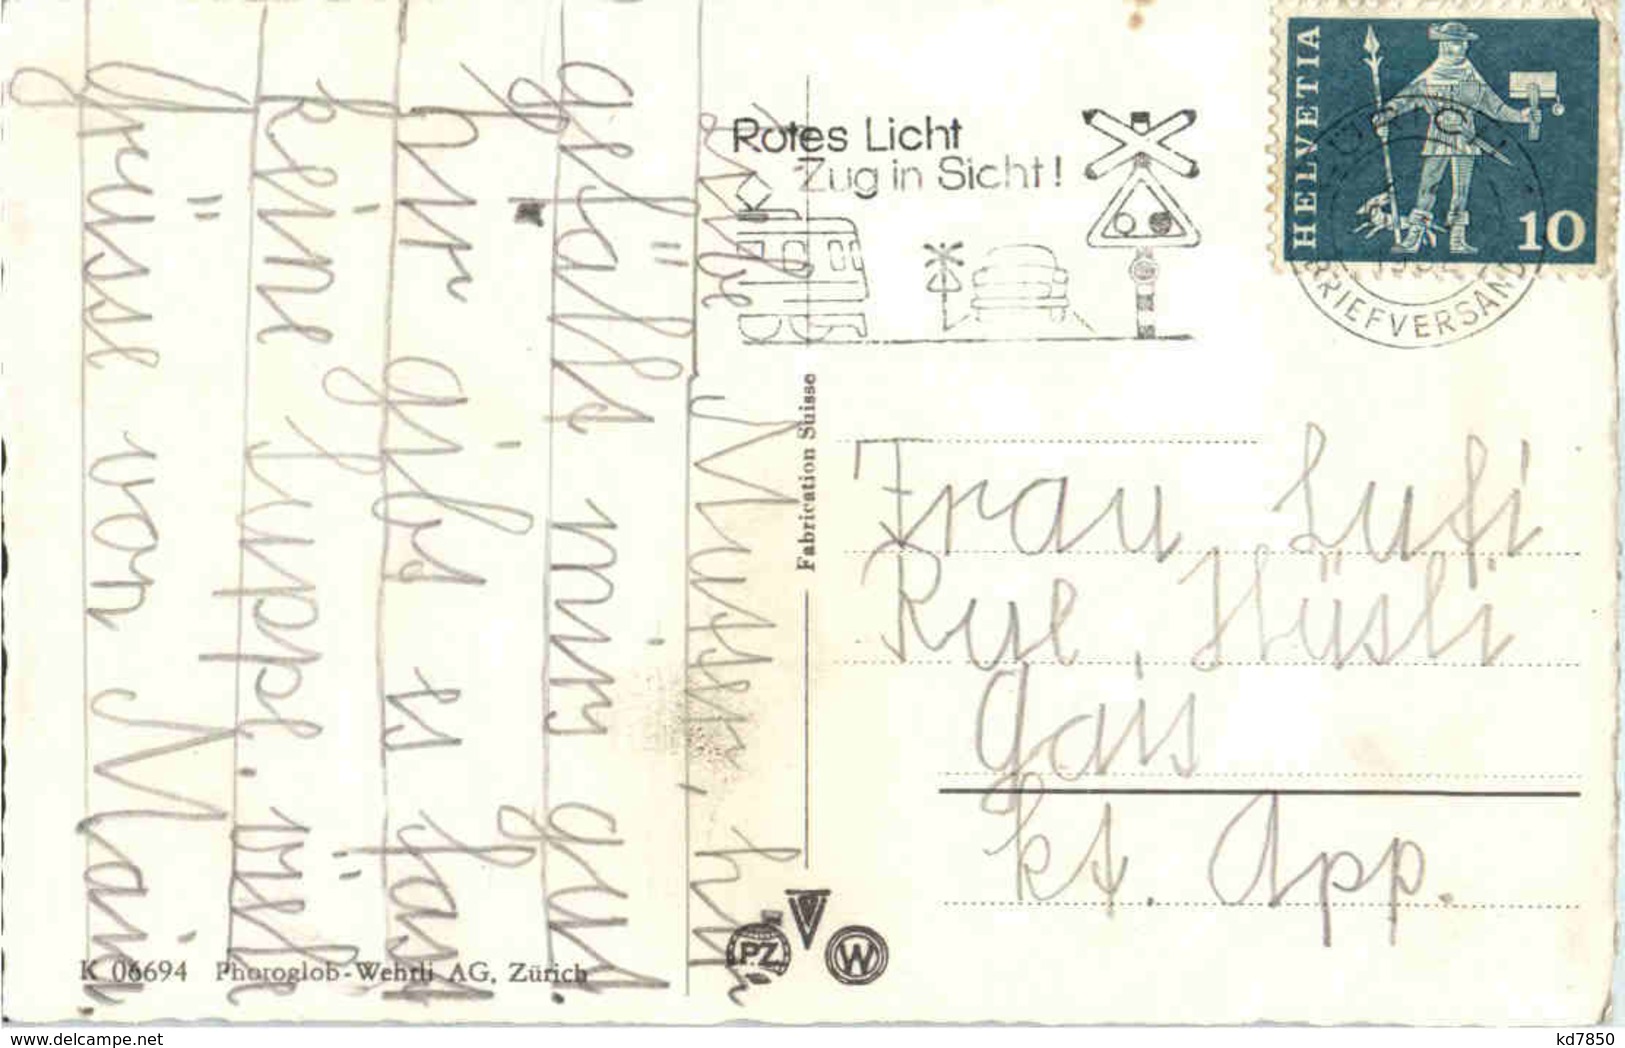 Liebe Mutter, hier
gefällt mir gut.
hir gibt es fast
keine Suppe. viele
Grüsse von Mari
Rotes Licht
Zug in Sicht!
HELVETIA
10
BRIEFVERSAND
Fabrication Suisse
Frau Luti
Rye, Hüsli
Gais
kt. App.
PZ
W
K 06694 Photoglob-Wehrli AG, Zürich
kd7850